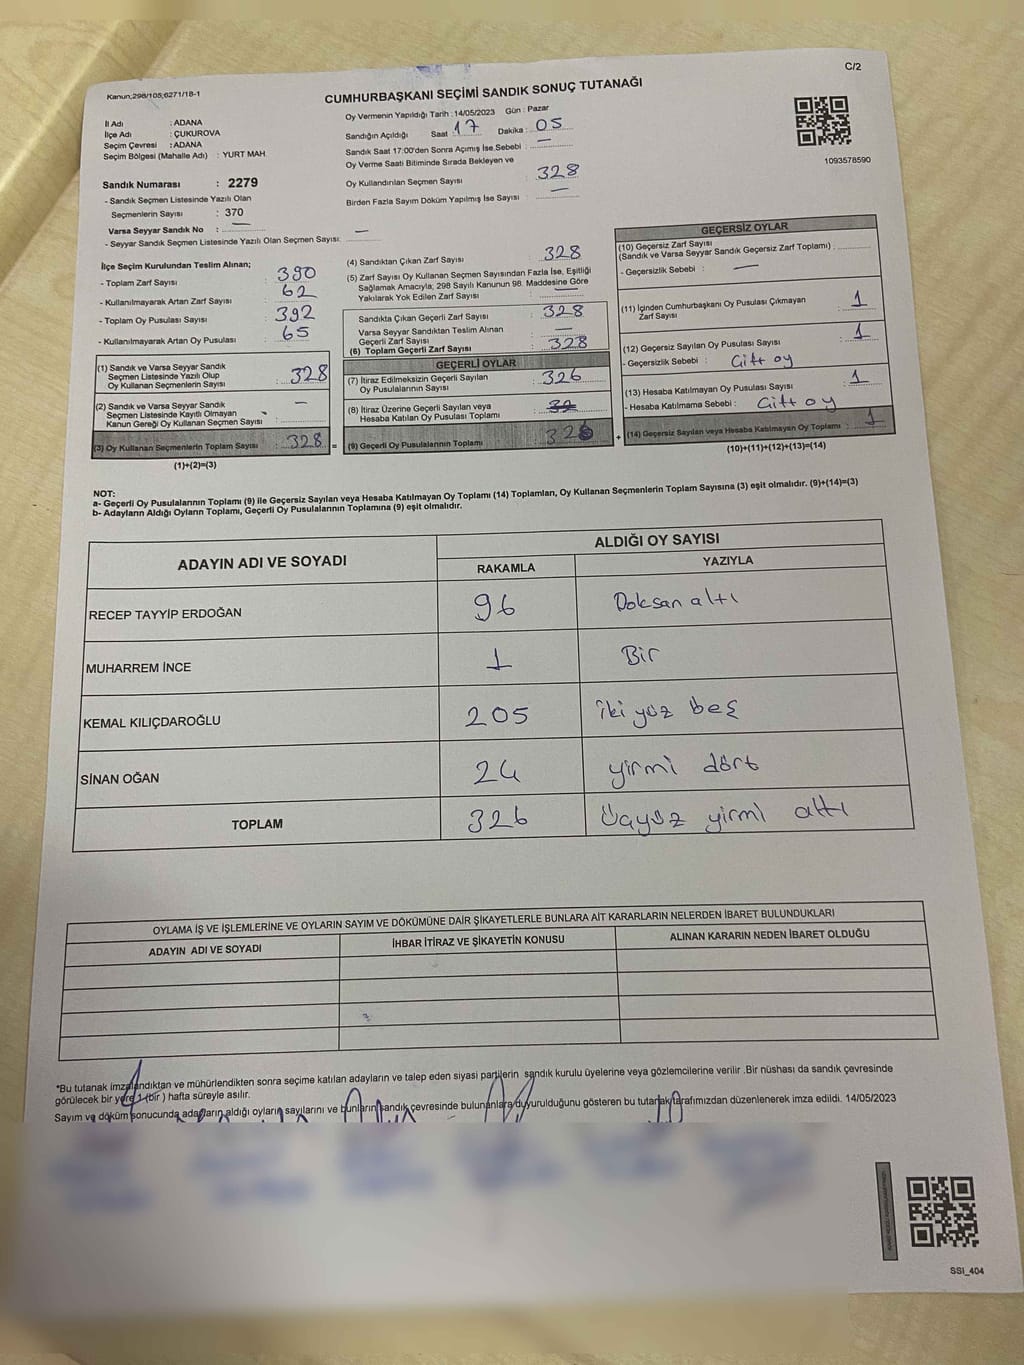 C/2
Kanun:298/105;6271/18-1
CUMHURBAŞKANI SEÇİMİ SANDIK SONUÇ TUTANAĞI
1093578590
İl Adı : ADANA
İlçe Adı : ÇUKUROVA
Seçim Çevresi : ADANA
Seçim Bölgesi (Mahalle Adı) : YURT MAH.
Sandık Numarası : 2279
- Sandık Seçmen Listesinde Yazılı Olan
Seçmenlerin Sayısı : 370
Varsa Seyyar Sandık No : —
- Seyyar Sandık Seçmen Listesinde Yazılı Olan Seçmen Sayısı: —
Oy Vermenin Yapıldığı Tarih :14/05/2023 Gün : Pazar
Sandığın Açıldığı Saat 17 Dakika : 05
Sandık Saat 17:00'den Sonra Açımış İse Sebebi : —
Oy Verme Saati Bitiminde Sırada Bekleyen ve
Oy Kullandırılan Seçmen Sayısı : 328
Birden Fazla Sayım Döküm Yapılmış İse Sayısı : —
İlçe Seçim Kurulundan Teslim Alınan;
- Toplam Zarf Sayısı : 390
- Kullanılmayarak Artan Zarf Sayısı : 62
- Toplam Oy Pusulası Sayısı : 392
- Kullanılmayarak Artan Oy Pusulası : 65
(1) Sandık ve Varsa Seyyar Sandık
Seçmen Listesinde Yazılı Olup
Oy Kullanan Seçmenlerin Sayısı : 328
(2) Sandık ve Varsa Seyyar Sandık
Seçmen Listesinde Kayıtlı Olmayan
Kanun Gereği Oy Kullanan Seçmen Sayısı : —
(3) Oy Kullanan Seçmenlerin Toplam Sayısı : 328 =
(1)+(2)=(3)
(4) Sandıktan Çıkan Zarf Sayısı : 328
(5) Zarf Sayısı Oy Kullanan Seçmen Sayısından Fazla İse, Eşitliği
Sağlamak Amacıyla; 298 Sayılı Kanunun 98. Maddesine Göre
Yakılarak Yok Edilen Zarf Sayısı : —
Sandıkta Çıkan Geçerli Zarf Sayısı : 328
Varsa Seyyar Sandıktan Teslim Alınan
Geçerli Zarf Sayısı : —
(6) Toplam Geçerli Zarf Sayısı : 328
GEÇERLİ OYLAR
(7) İtiraz Edilmeksizin Geçerli Sayılan
Oy Pusulalarının Sayısı : 326
(8) İtiraz Üzerine Geçerli Sayılan veya
Hesaba Katılan Oy Pusulası Toplamı :
(9) Geçerli Oy Pusulalarının Toplamı : 326 +
GEÇERSİZ OYLAR
(10) Geçersiz Zarf Sayısı
(Sandık ve Varsa Seyyar Sandık Geçersiz Zarf Toplamı) :
- Geçersizlik Sebebi : —
(11) İçinden Cumhurbaşkanı Oy Pusulası Çıkmayan
Zarf Sayısı : 1
(12) Geçersiz Sayılan Oy Pusulası Sayısı : 1
- Geçersizlik Sebebi : Çift oy
(13) Hesaba Katılmayan Oy Pusulası Sayısı : 1
- Hesaba Katılmama Sebebi : Çift oy
(14) Geçersiz Sayılan veya Hesaba Katılmayan Oy Toplamı : 1
(10)+(11)+(12)+(13)=(14)
NOT:
a- Geçerli Oy Pusulalarının Toplamı (9) ile Geçersiz Sayılan veya Hesaba Katılmayan Oy Toplamı (14) Toplamları, Oy Kullanan Seçmenlerin Toplam Sayısına (3) eşit olmalıdır. (9)+(14)=(3)
b- Adayların Aldığı Oyların Toplamı, Geçerli Oy Pusulalarının Toplamına (9) eşit olmalıdır.
ADAYIN ADI VE SOYADI ALDIĞI OY SAYISI
RAKAMLA YAZIYLA
RECEP TAYYİP ERDOĞAN 96 Doksan altı
MUHARREM İNCE 1 Bir
KEMAL KILIÇDAROĞLU 205 iki yüz beş
SİNAN OĞAN 24 yirmi dört
TOPLAM 326 Üçyüz yirmi altı
OYLAMA İŞ VE İŞLEMLERİNE VE OYLARIN SAYIM VE DÖKÜMÜNE DAİR ŞİKAYETLERLE BUNLARA AİT KARARLARIN NELERDEN İBARET BULUNDUKLARI
ADAYIN ADI VE SOYADI İHBAR İTİRAZ VE ŞİKAYETİN KONUSU ALINAN KARARIN NEDEN İBARET OLDUĞU
*Bu tutanak imzalandıktan ve mühürlendikten sonra seçime katılan adayların ve talep eden siyasi partilerin sandık kurulu üyelerine veya gözlemcilerine verilir .Bir nüshası da sandık çevresinde
görülecek bir yere 1 (bir ) hafta süreyle asılır.
Sayım ve döküm sonucunda adayların aldığı oyların sayılarını ve bunların sandık çevresinde bulunanlara duyurulduğunu gösteren bu tutanak tarafımızdan düzenlenerek imza edildi. 14/05/2023
SSI_404